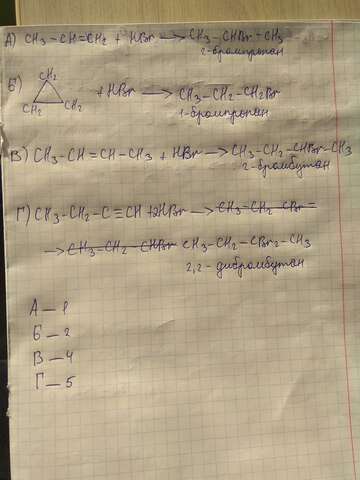 А) CH₃ – CH = CH₂ + HBr → CH₃ – CHBr – CH₃
2-бромпропан
Б) CH₂ CH₂ CH₂ + HBr → CH₃ – CH₂ – CH₂Br
1-бромпропан
В) CH₃ – CH = CH – CH₃ + HBr → CH₃ – CH₂ – CHBr – CH₃
2-бромбутан
Г) CH₃ – CH₂ – C ≡ CH + 2HBr → CH₃ – CH₂ – CBr =
→ CH₃ – CH₂ – CHBr CH₃ – CH₂ – CBr₂ – CH₃
2,2 - дибромбутан
А – 1
Б – 2
В – 4
Г – 5